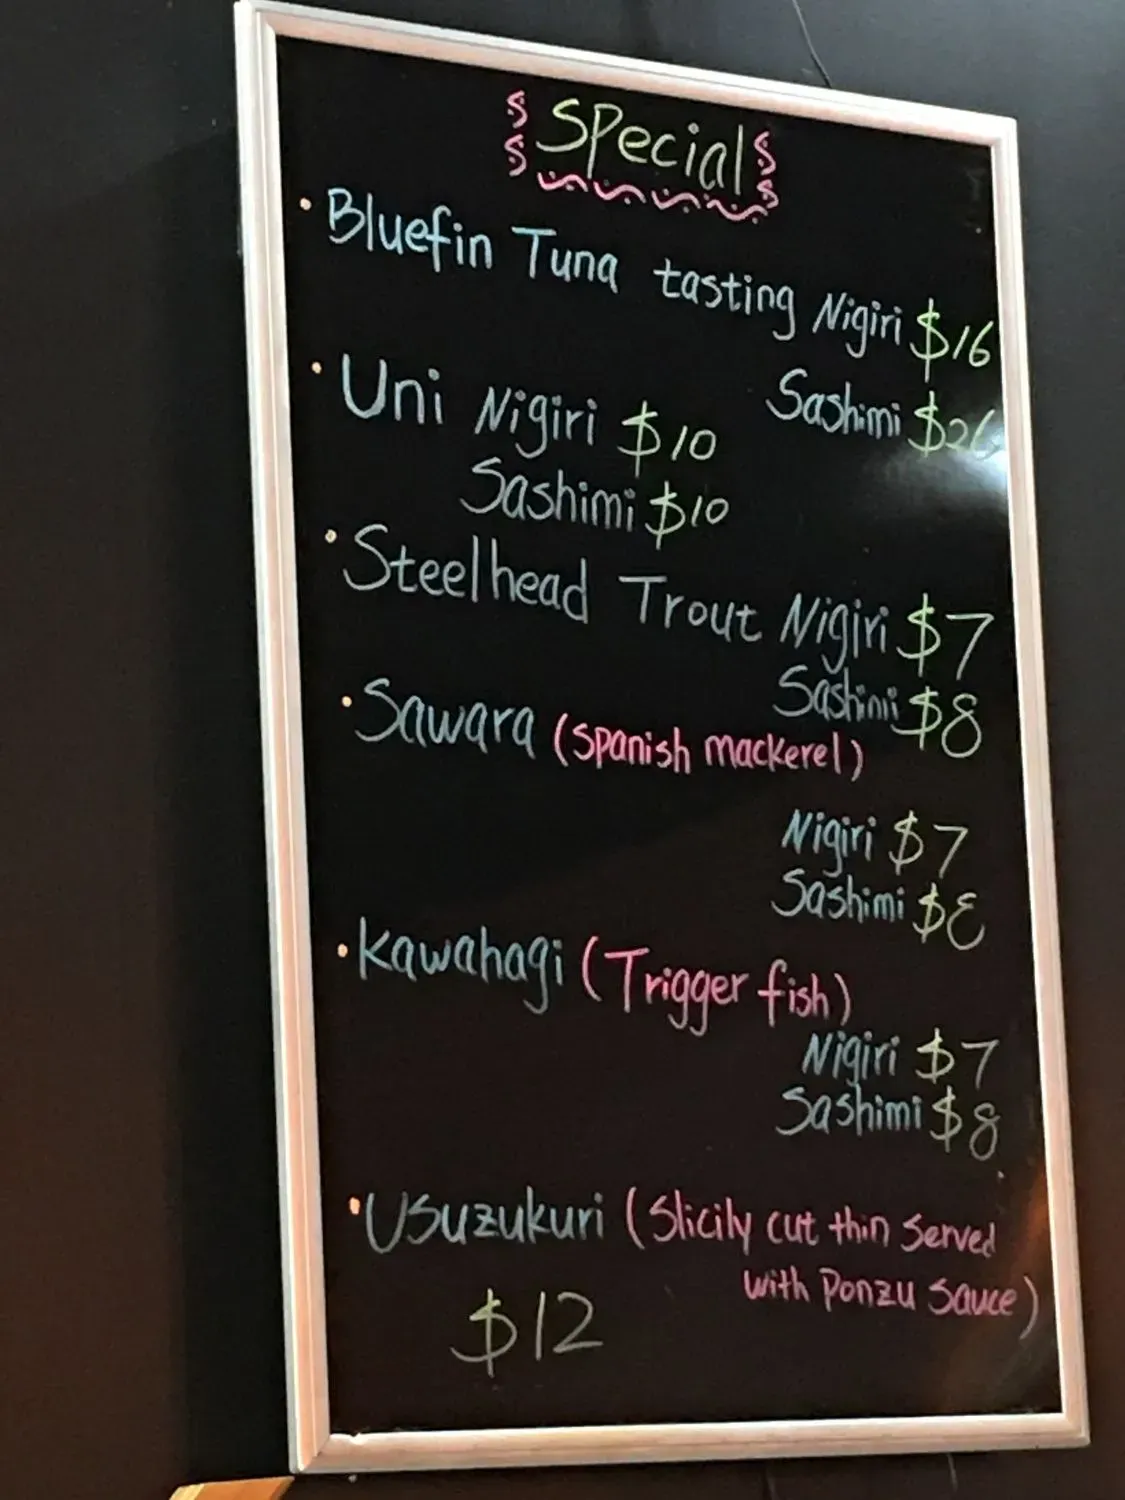 Special
• Bluefin Tuna tasting Nigiri $16
Sashimi $26
• Uni Nigiri $10
Sashimi $10
• Steelhead Trout Nigiri $7
Sashimi $8
• Sawara (Spanish mackerel)
Nigiri $7
Sashimi $8
• Kawahagi (Trigger fish)
Nigiri $7
Sashimi $8
• Usuzukuri (Slicily cut thin served
with Ponzu sauce)
$12